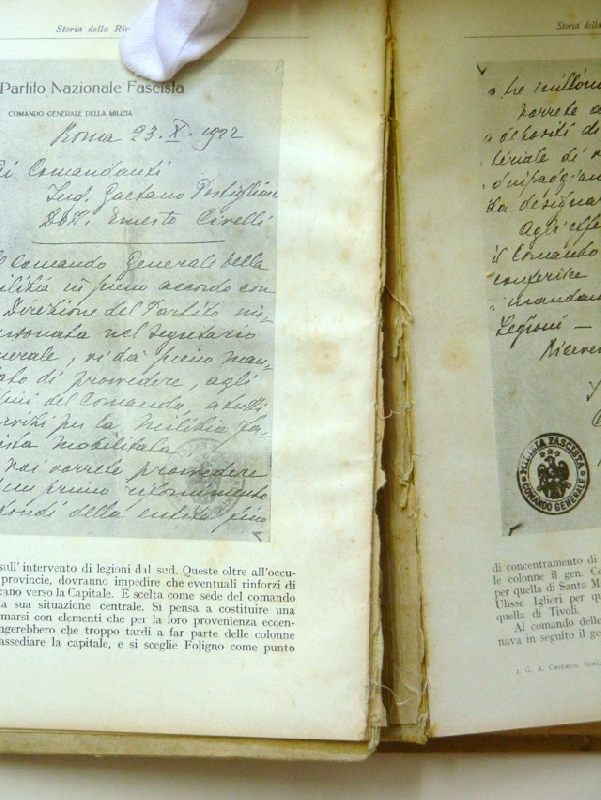 Storia della Ri
Partito Nazionale Fascista
COMANDO GENERALE DELLA MILIZIA
Roma 23. X. 1922
Comandanti
Ind. Gaetano Postiglione
Dott. Ernesto Civelli
Comando Generale della
in pieno accordo con
Direzione del Partito
nel segretario
vi dà pieno man-
di provvedere, agli
del Comando, a tutti
per la milizia fa-
mobilitata
voi vorrete provvedere
un primo rifornimento
fondi della entità fino
sull' intervento di legioni dal sud. Queste oltre all'occu-
provincie, dovranno impedire che eventuali rinforzi di
cano verso la Capitale. È scelta come sede del comando
a sua situazione centrale. Si pensa a costituire una
marsi con elementi che per la loro provenienza eccen-
ngerebbero che troppo tardi a far parte delle colonne
assediare la capitale, e si sceglie Foligno come punto
Storia della
tre milioni
vorrete
depositi di
di
la designa
Agli effe
il Comando
conferisce
mandan
Legioni —
MILIZIA FASCISTA
COMANDO GENERALE
di concentramento di
le colonne il gen. Ce
per quella di Santa M
Ulisse Iglieri per qu
quella di Tivoli.
Al comando delle
nava in seguito il ge